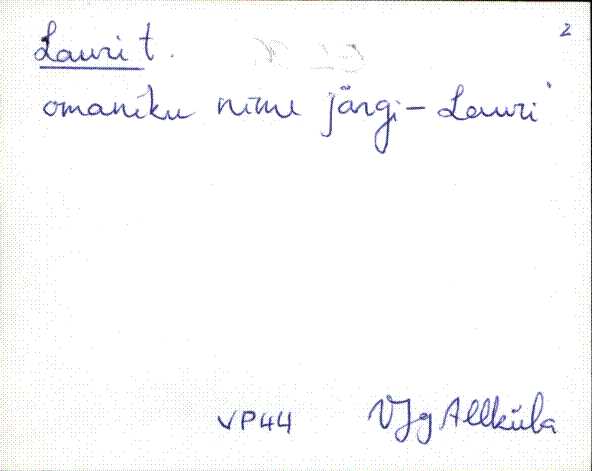 2
Lauri t.
omaniku nime järgi - Lauri
VP44 VJg Allküla